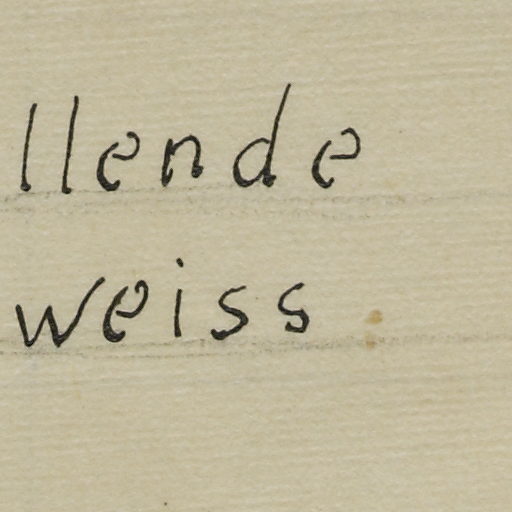 llende
weiss